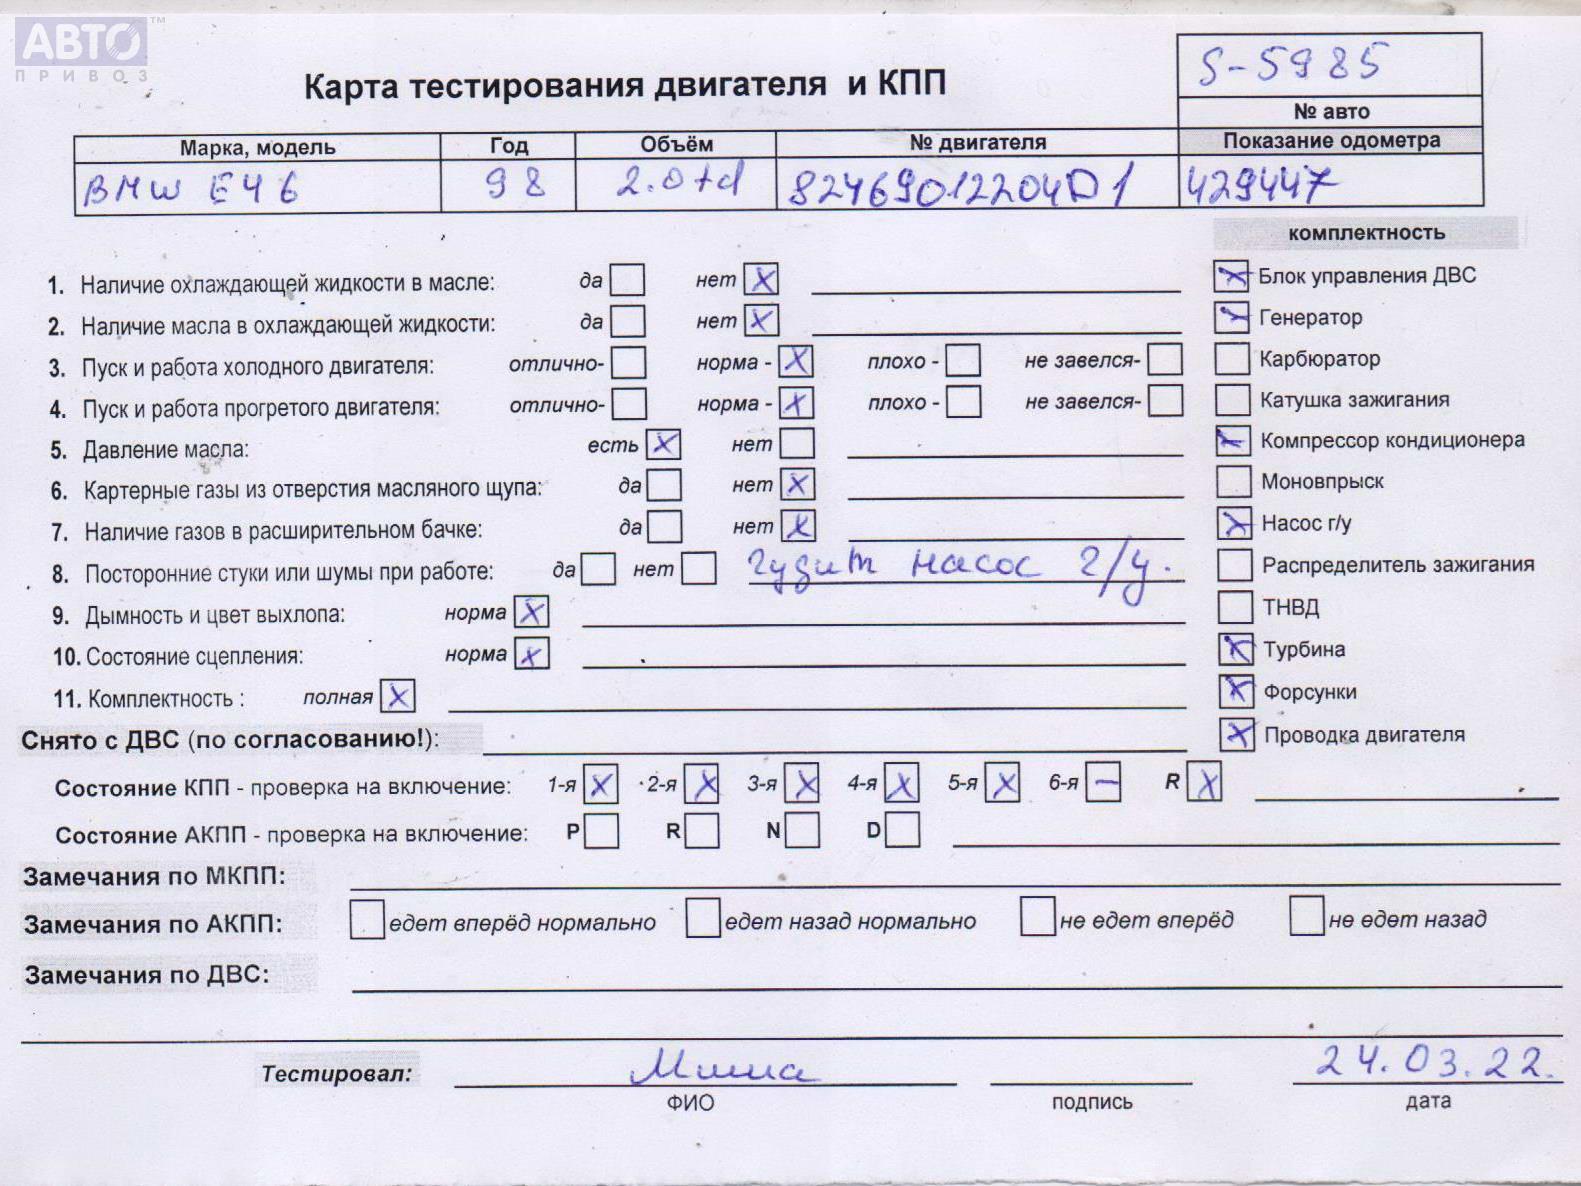 АВТО™
ПРИВОЗ
Карта тестирования двигателя и КПП
S-5985
№ авто
Марка, модель Год Объём № двигателя Показание одометра
BMW E46 98 2.0td 82469012204D1 429447
комплектность
1. Наличие охлаждающей жидкости в масле: да нет X
2. Наличие масла в охлаждающей жидкости: да нет X
3. Пуск и работа холодного двигателя: отлично- норма - X плохо - не завелся-
4. Пуск и работа прогретого двигателя: отлично- норма - X плохо - не завелся-
5. Давление масла: есть X нет
6. Картерные газы из отверстия масляного щупа: да нет X
7. Наличие газов в расширительном бачке: да нет X
8. Посторонние стуки или шумы при работе: да нет гудит насос г/у.
9. Дымность и цвет выхлопа: норма X
10. Состояние сцепления: норма X
11. Комплектность : полная X
X Блок управления ДВС
X Генератор
Карбюратор
Катушка зажигания
X Компрессор кондиционера
Моновпрыск
X Насос г/у
Распределитель зажигания
ТНВД
X Турбина
X Форсунки
X Проводка двигателя
Снято с ДВС (по согласованию!):
Состояние КПП - проверка на включение: 1-я X 2-я X 3-я X 4-я X 5-я X 6-я – R X
Состояние АКПП - проверка на включение: P R N D
Замечания по МКПП:
Замечания по АКПП: едет вперёд нормально едет назад нормально не едет вперёд не едет назад
Замечания по ДВС:
Тестировал: Миша 24.03.22.
ФИО подпись дата